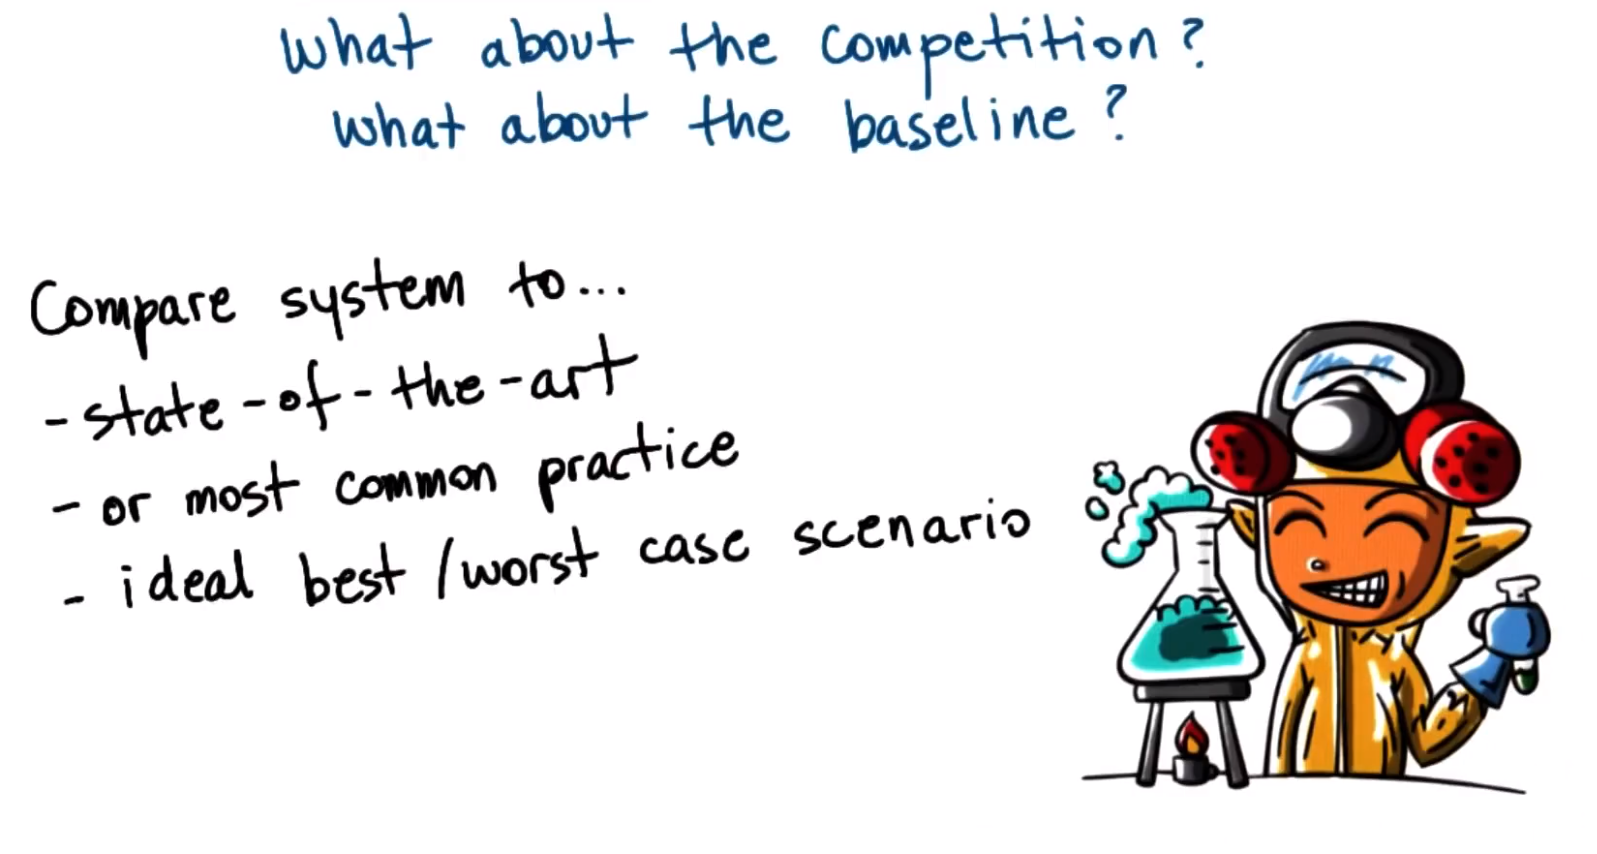 What about the competition?
what about the baseline?
Compare system to...
- state-of-the-art
- or most common practice
- ideal best/worst case scenario